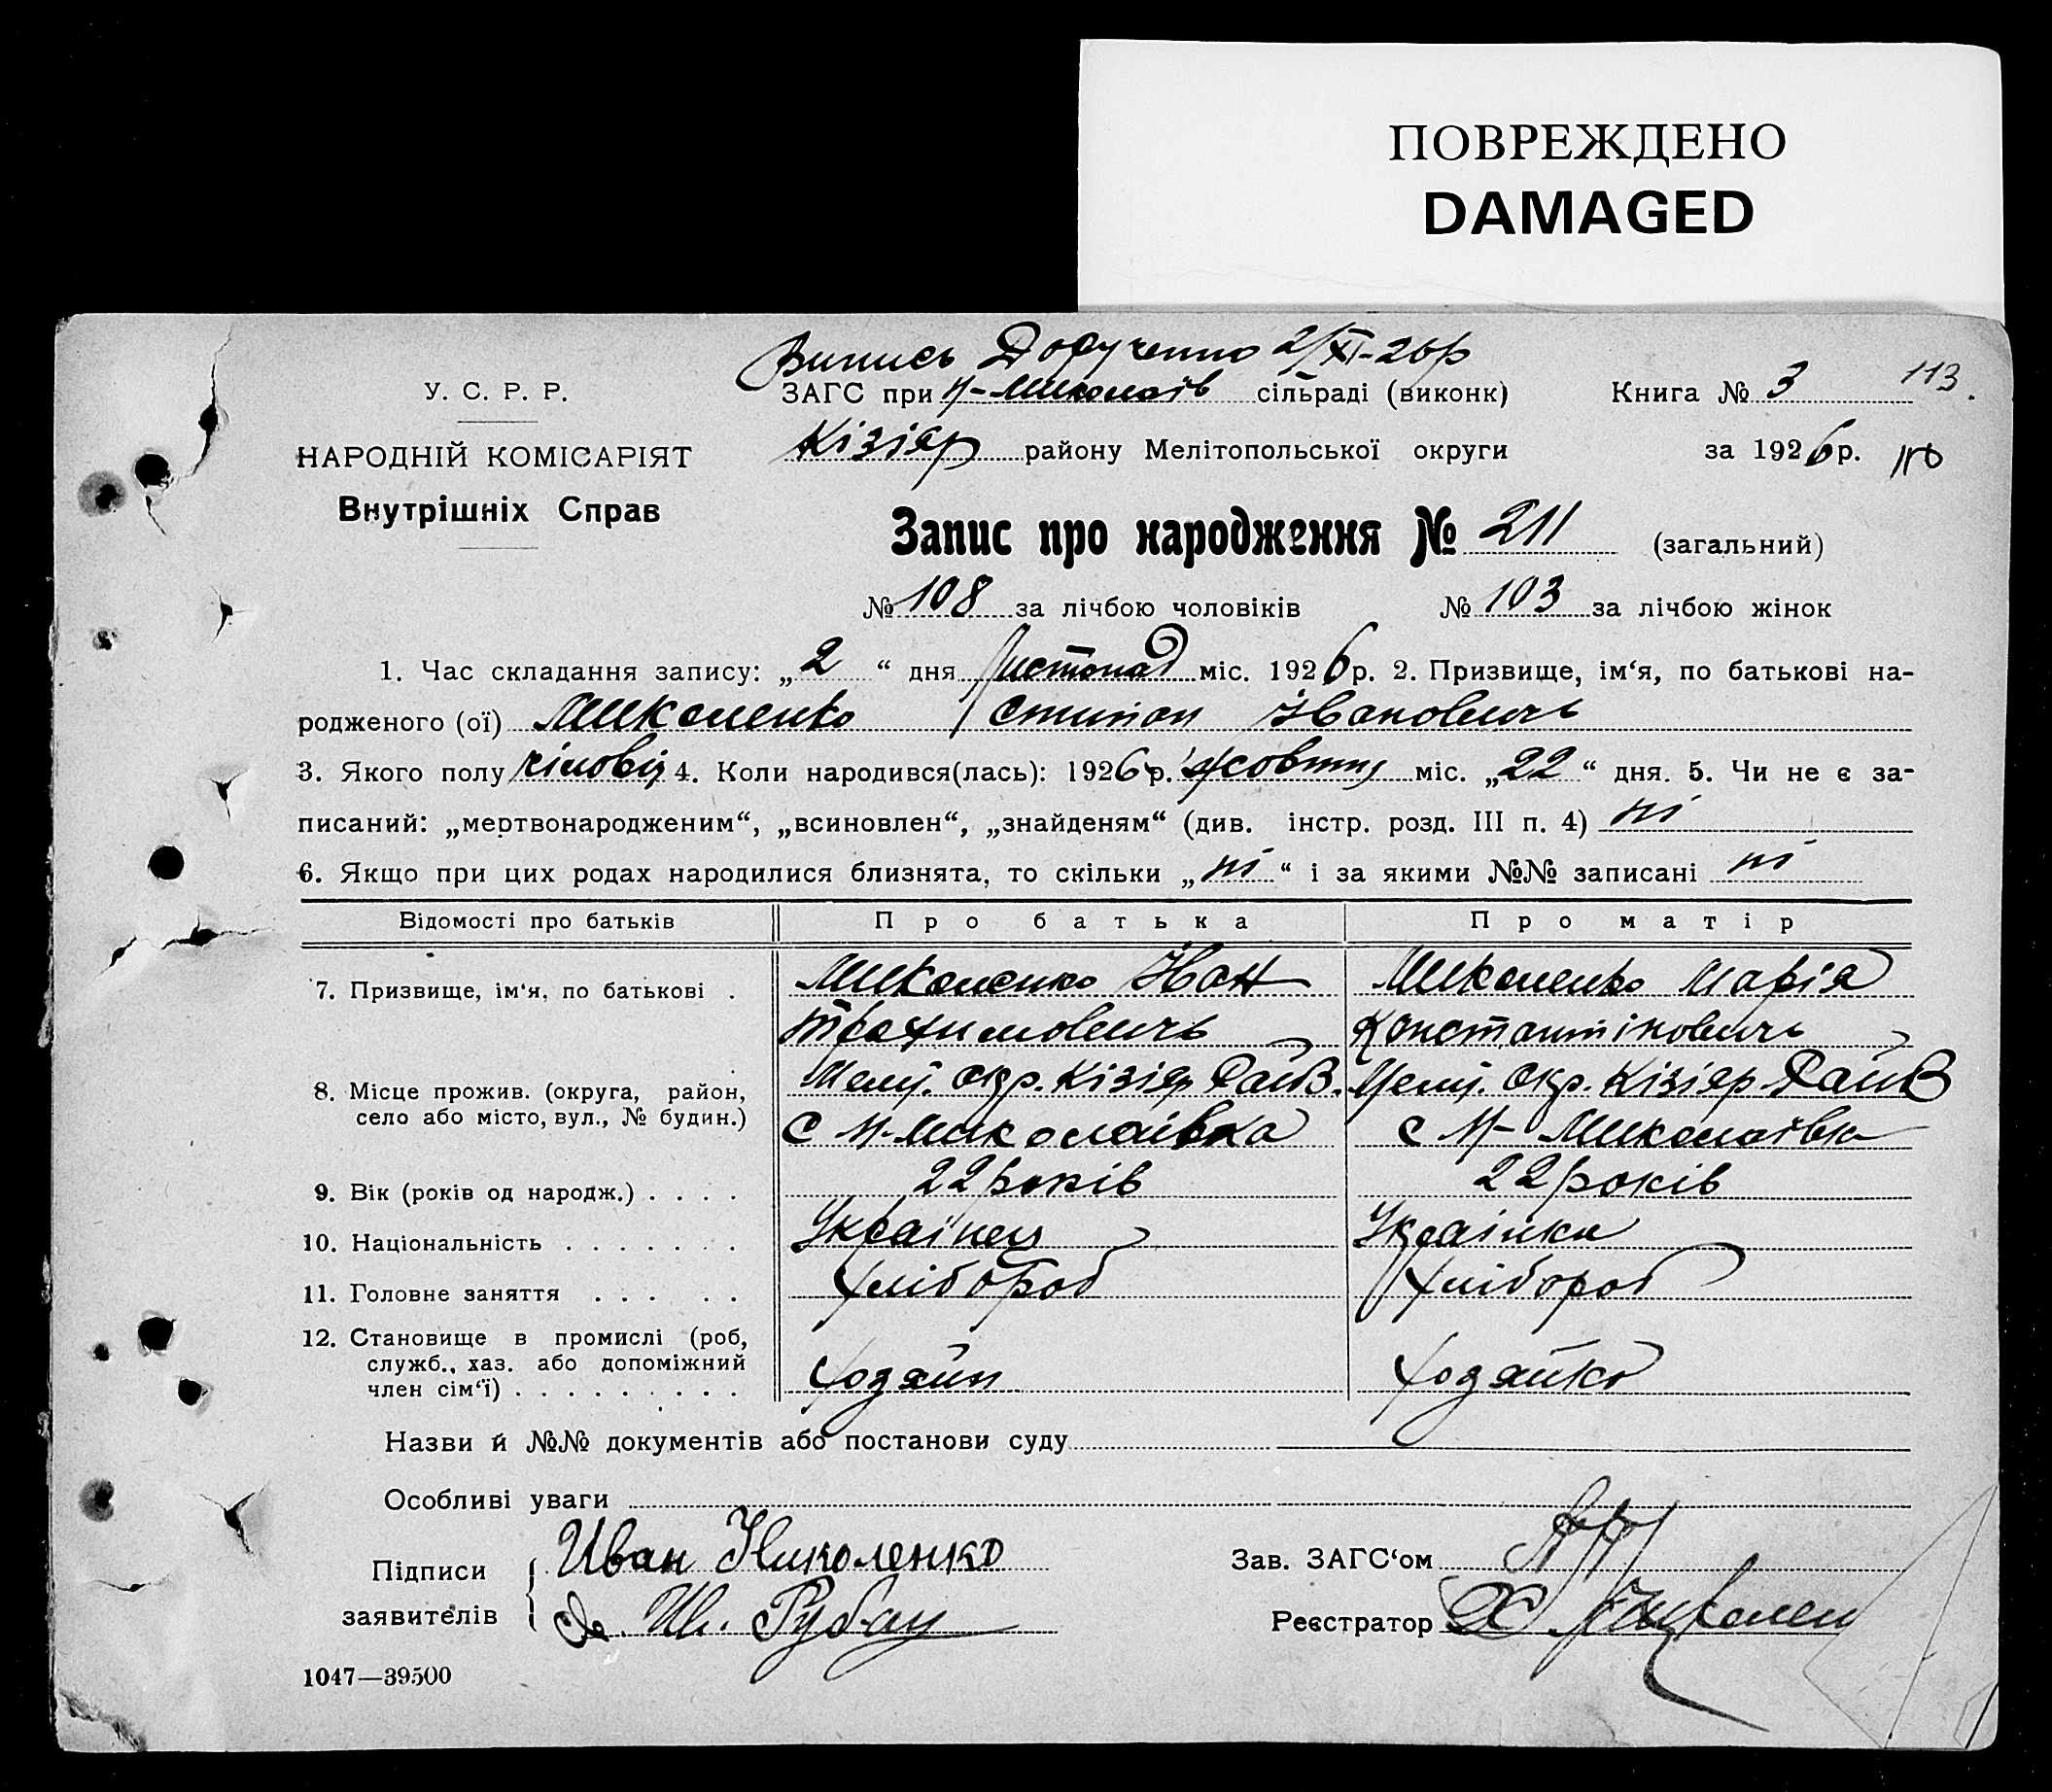 ПОВРЕЖДЕНО
DAMAGED
Випись Доручено 2/XI-26р
У. С. Р. Р.
ЗАГС при Н-Миколаїв сільраді (виконк) Книга № 3 113.
НАРОДНІЙ КОМІСАРІЯТ
Кізіяр району Мелітопольської округи за 1926р. 110
Внутрішніх Справ
Запис про народження № 211 (загальний)
№ 108 за лічбою чоловіків № 103 за лічбою жінок
1. Час складання запису: „2“ дня Листопад міс. 1926р. 2. Призвище, ім‘я, по батькові на-
родженого (ої) Миколенко Стипан Івановичь
3. Якого полу чіловіч 4. Коли народився(лась): 1926р. жовтня міс. „22“ дня. 5. Чи не є за-
писаний: „мертвонародженим“, „всиновлен“, „знайденям“ (див. інстр. розд. III п. 4) ні
6. Якщо при цих родах народилися близнята, то скільки „ні“ і за якими №№ записані ні
Відомості про батьків Про батька Про матір
7. Призвище, ім‘я, по батькові . Миколенко Іван Миколенко Марія
Трохимовичь Константіновичь
8. Місце прожив. (округа, район, Меліт. окр. Кізіяр Район. Меліт. Окр. Кізіяр Район
село або місто, вул., № будин.) с Н-Миколаівка с Н- Миколаївка
9. Вік (років од народж.) . . . . 22 років 22 років
10. Національність . . . . . . . Українец Украінка
11. Головне заняття . . . . . Хлібороб Хлібороб
12. Становище в промислі (роб,
служб., хаз. або допоміжний Хозяин Хозяйка
член сім‘ї) . . . . . . . . .
Назви й №№ документів або постанови суду
Особливі уваги
Підписи Иван Николенко Зав. ЗАГС‘ом
заявителів Рубан Реєстратор
1047—39500